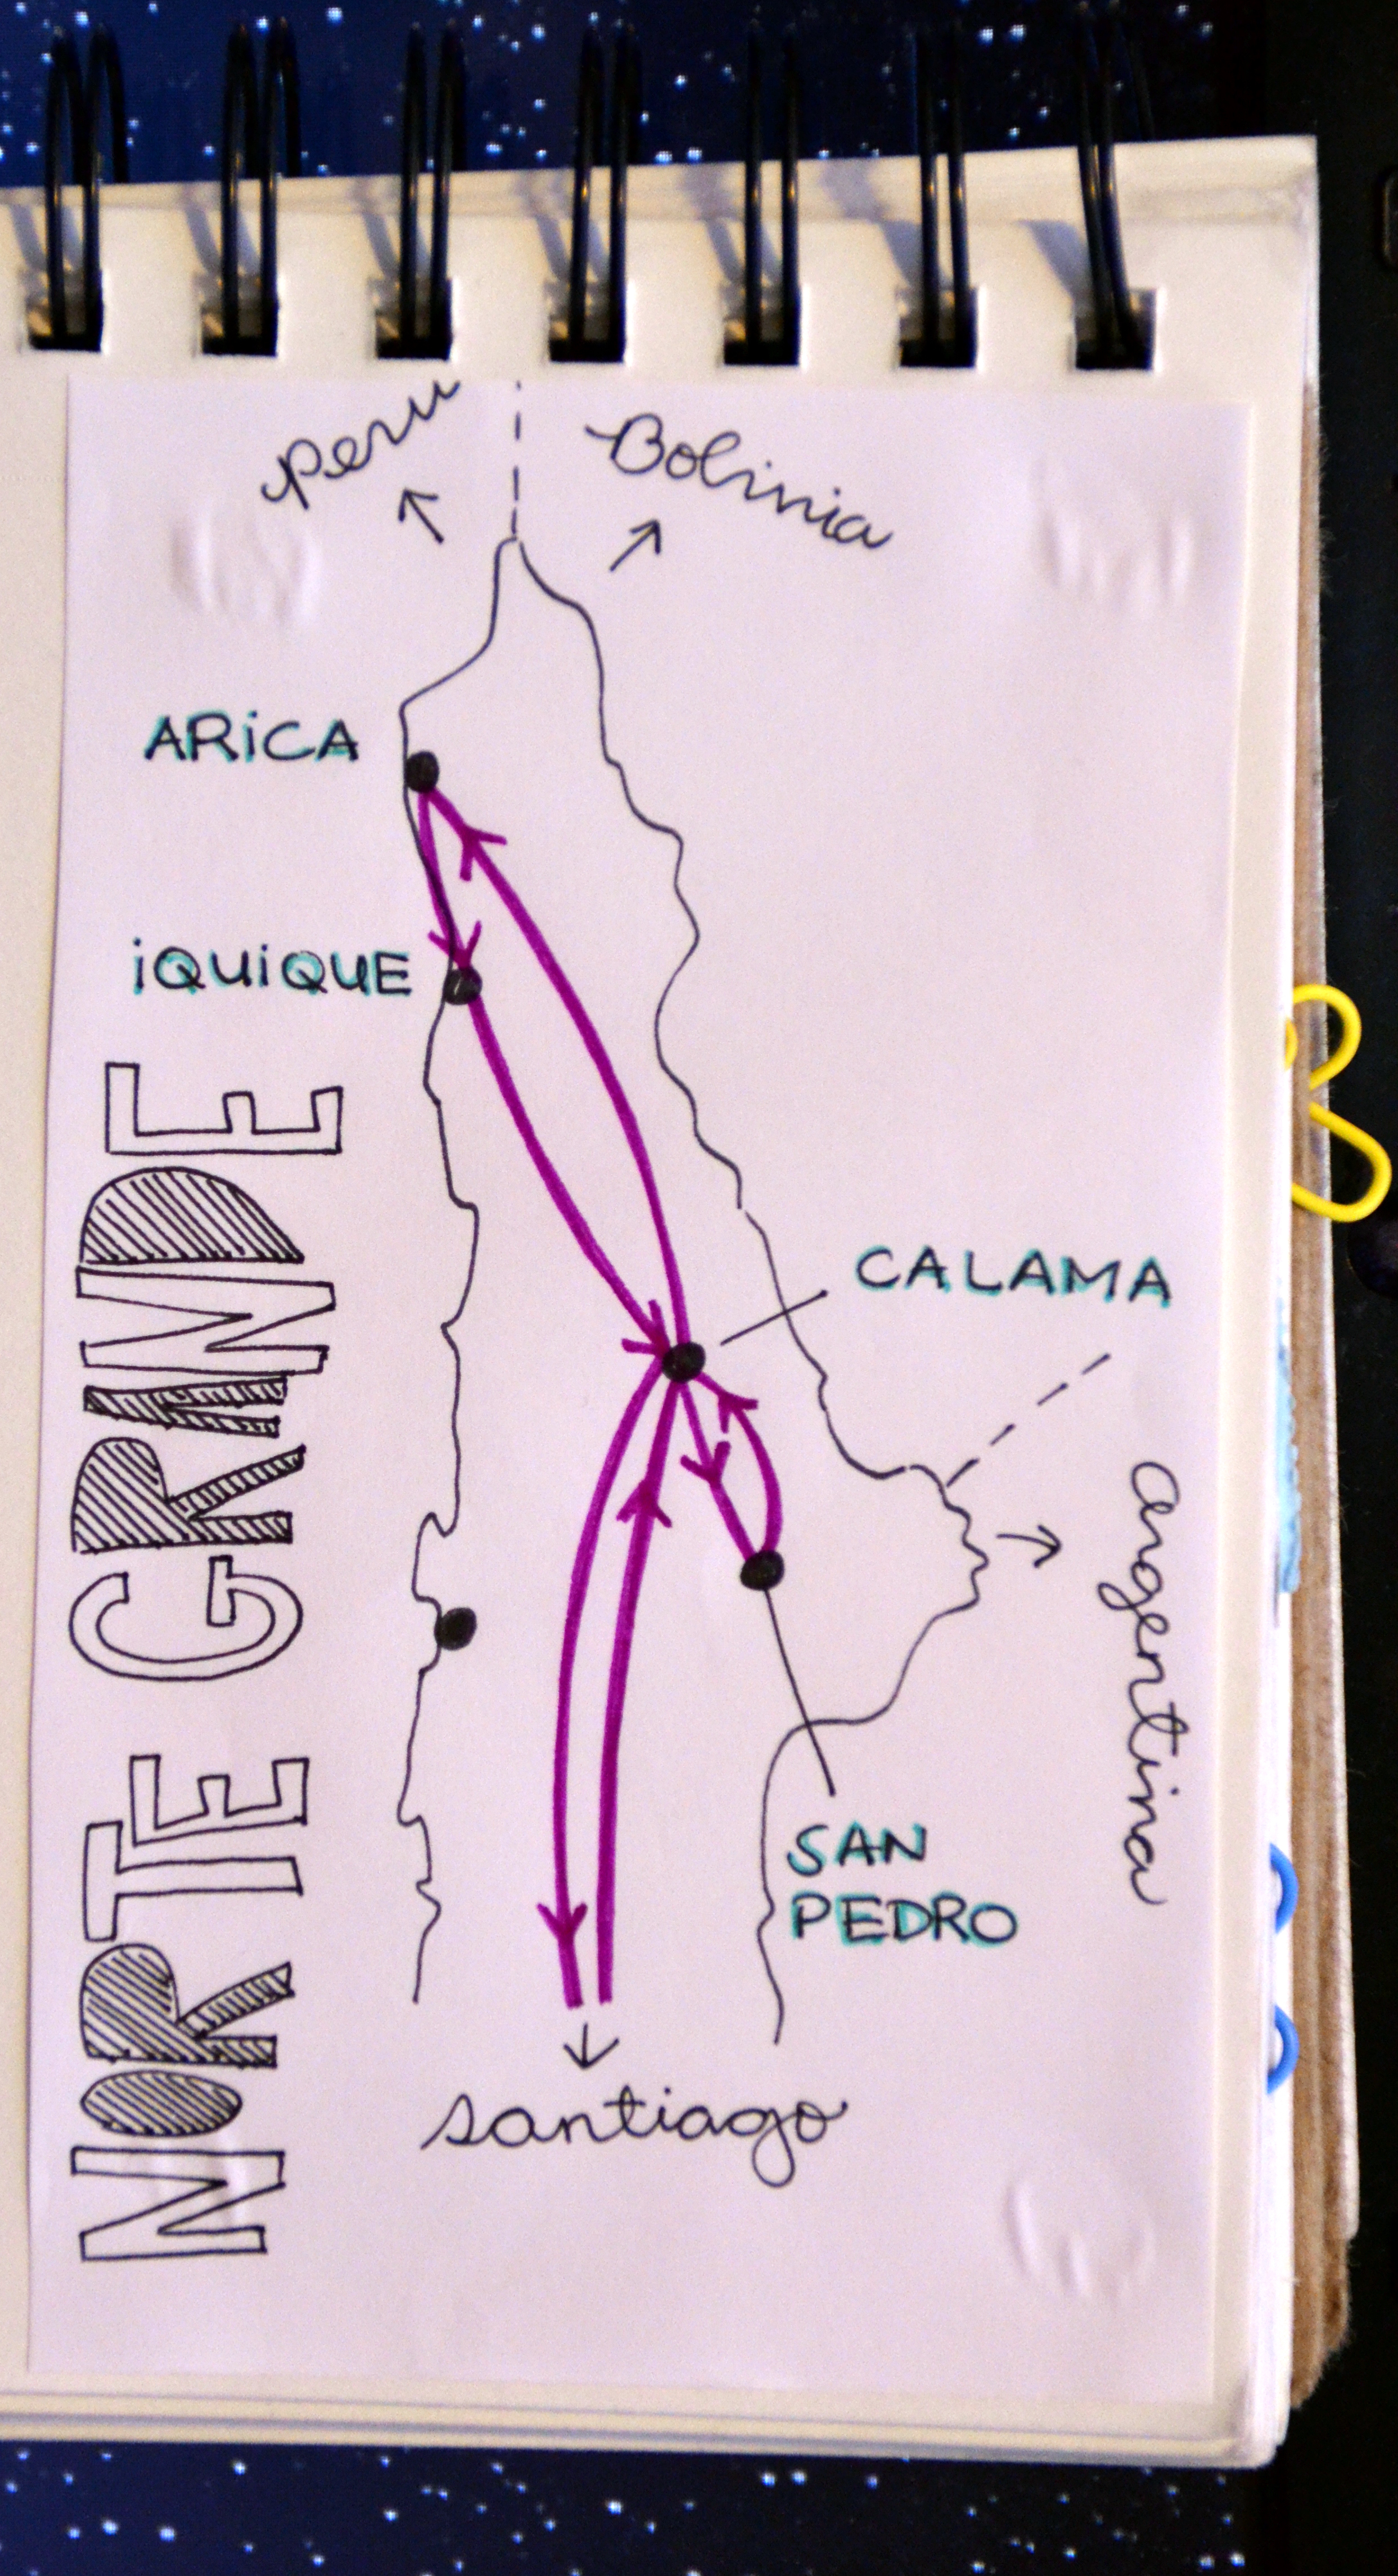 Peru
Bolivia
ARiCA
iQUiQUE
CALAMA
argentina
SAN
PEDRO
santiago
NORTE GRANDE